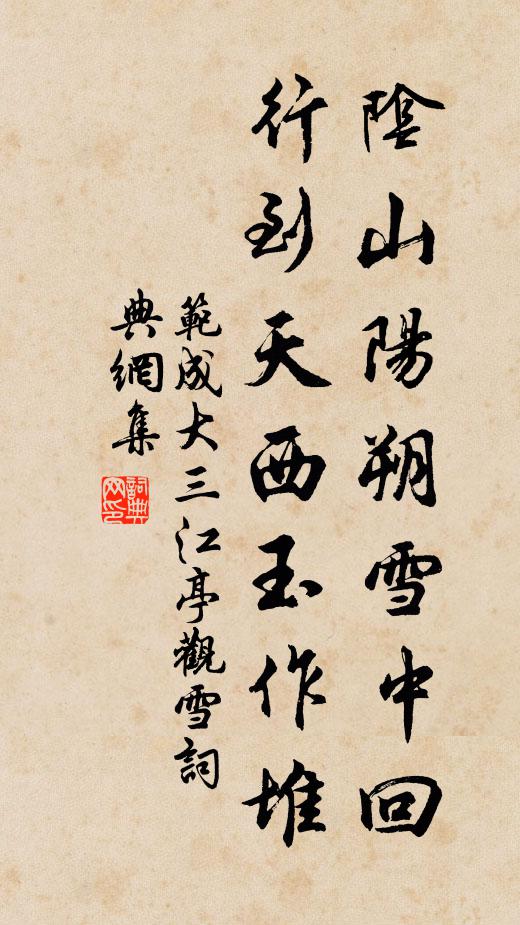 陰山陽朔雪中回
行到天西玉作堆
範成大三江亭觀雪詞
典網集
詞典网印